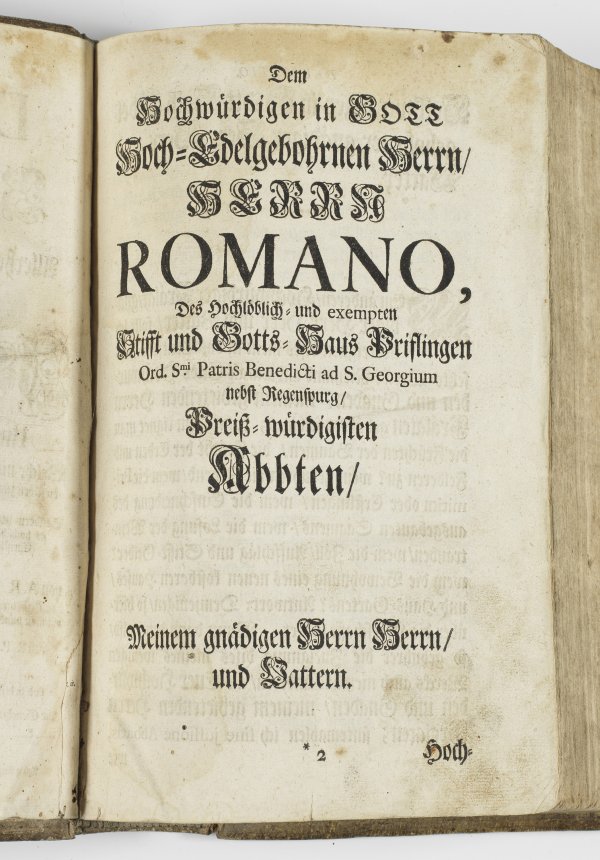 Dem
Hochwürdigen in GOTT
Hoch=Edelgebohrnen Herrn/
HERRN
ROMANO,
Des Hochlöblich= und exempten
Stifft und Gotts=Haus Priflingen
Ord. S.mi Patris Benedicti ad S. Georgium
nebst Regenspurg/
Preiß=würdigisten
Abbten/
Meinem gnädigen Herrn Herrn/
und Vattern.
*2
Hoch=